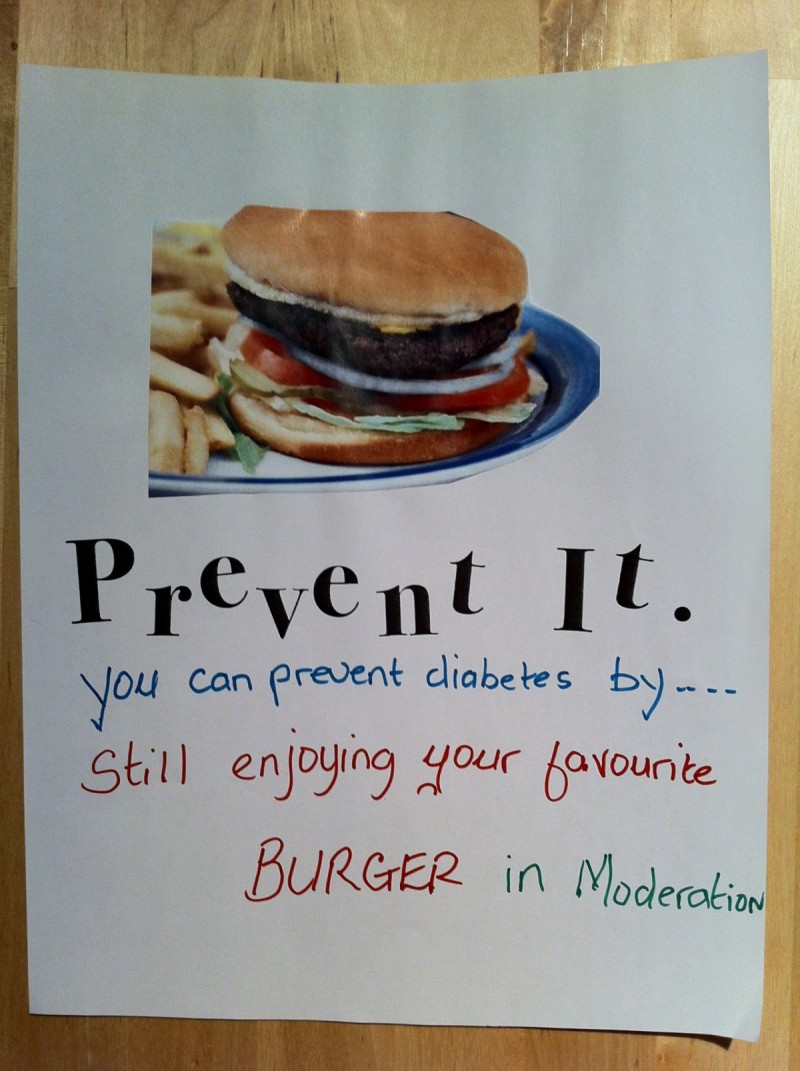 Prevent It.
you can prevent diabetes by----
Still enjoying your favourite
BURGER in Moderation